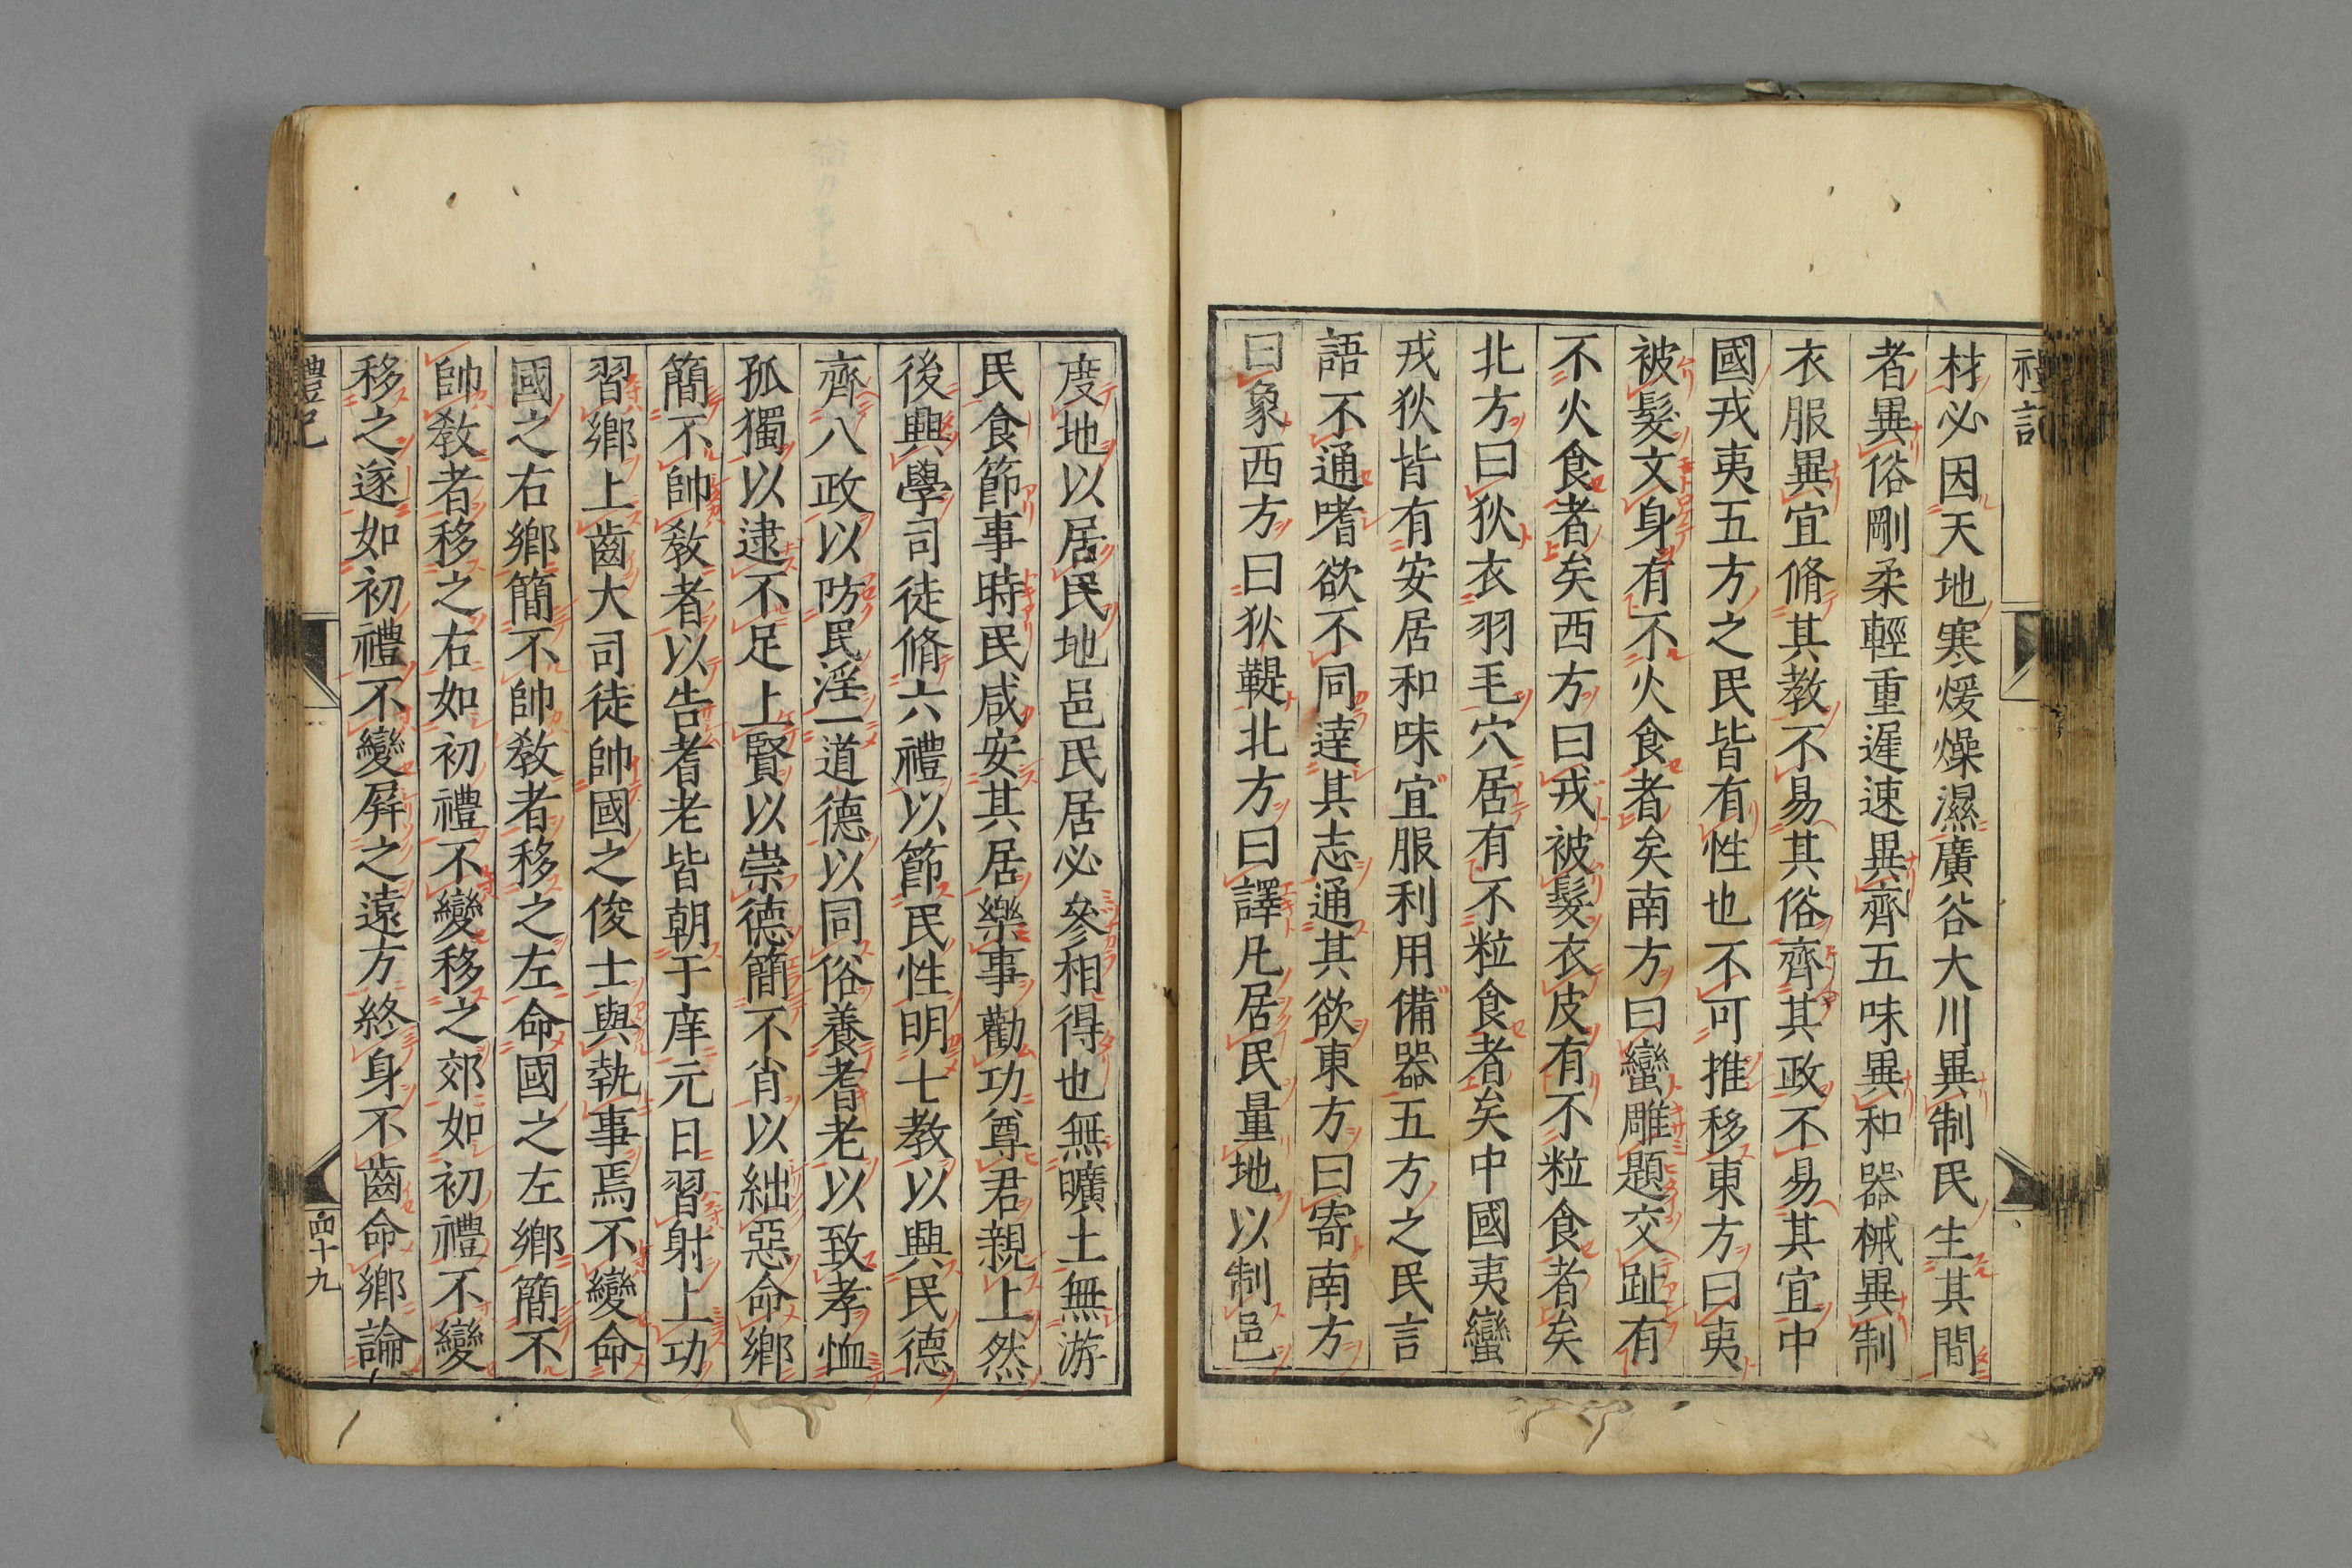 禮記
材必因天地寒煖燥濕廣谷大川異制民生其間
者異俗剛柔輕重遲速異齊五味異和器械異制
衣服異宜脩其教不易其俗齊其政不易其宜中
國戎夷五方之民皆有性也不可推移東方曰夷
被髮文身有不火食者矣南方曰蠻雕題交趾有
不火食者矣西方曰戎被髮衣皮有不粒食者矣
北方曰狄衣羽毛穴居有不粒食者矣中國夷蠻
戎狄皆有安居和味宜服利用備器五方之民言
語不通嗜欲不同達其志通其欲東方曰寄南方
曰象西方曰狄鞮北方曰譯凡居民量地以制邑
度地以居民地邑民居必參相得也無曠土無游
民食節事時民咸安其居樂事勸功尊君親上然
後興學司徒脩六禮以節民性明七教以興民德
齊八政以防民淫一道德以同俗養耆老以致孝恤
孤獨以逮不足上賢以崇德簡不肖以絀惡命鄉
簡不帥教者以告耆老皆朝于庠元日習射上功
習鄉上齒大司徒帥國之俊士與執事焉不變命
國之右鄉簡不帥教者移之左命國之左鄉簡不
帥教者移之右如初禮不變移之郊如初禮不變
移之遂如初禮不變屏之遠方終身不齒命鄉論
禮記
四十九